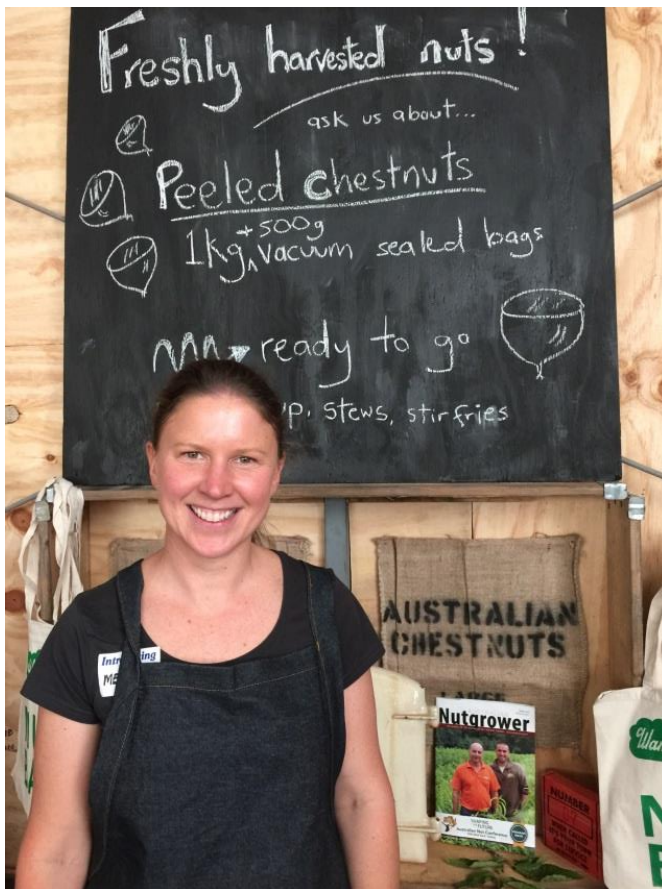 Freshly harvested nuts!
ask us about...
Peeled chestnuts
+ 500g
1kg ^ vacuum sealed bags
ready to go
stews, stirfries
AUSTRALIAN
CHESTNUTS
LARGE
Nutgrower
Australian Nut Conference
NUMBER
17